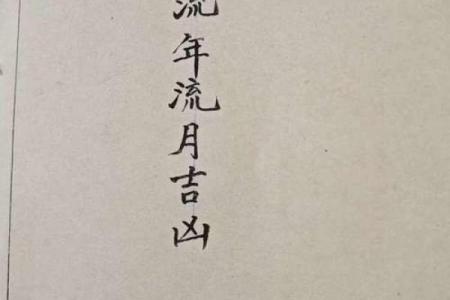 流年流月吉凶